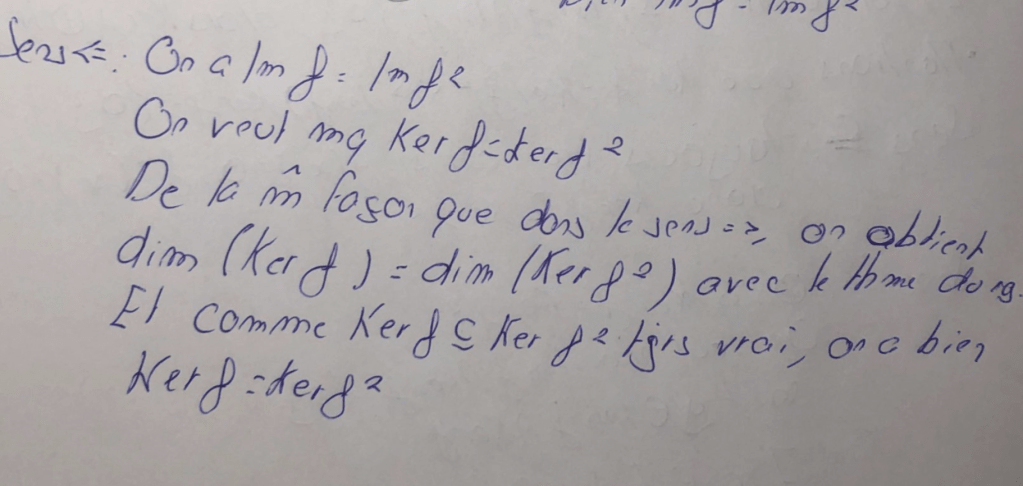 Im f = Im f²
Sens <=: On a Im f = Im f²
On veut mq Ker f = Ker f²
De la m̂ façon que dans le sens =>, on obtient
dim (Ker f) = dim (Ker f²) avec le thme du rg.
Et comme Ker f ⊆ Ker f² tjrs vrai, on a bien
Ker f = Ker f²